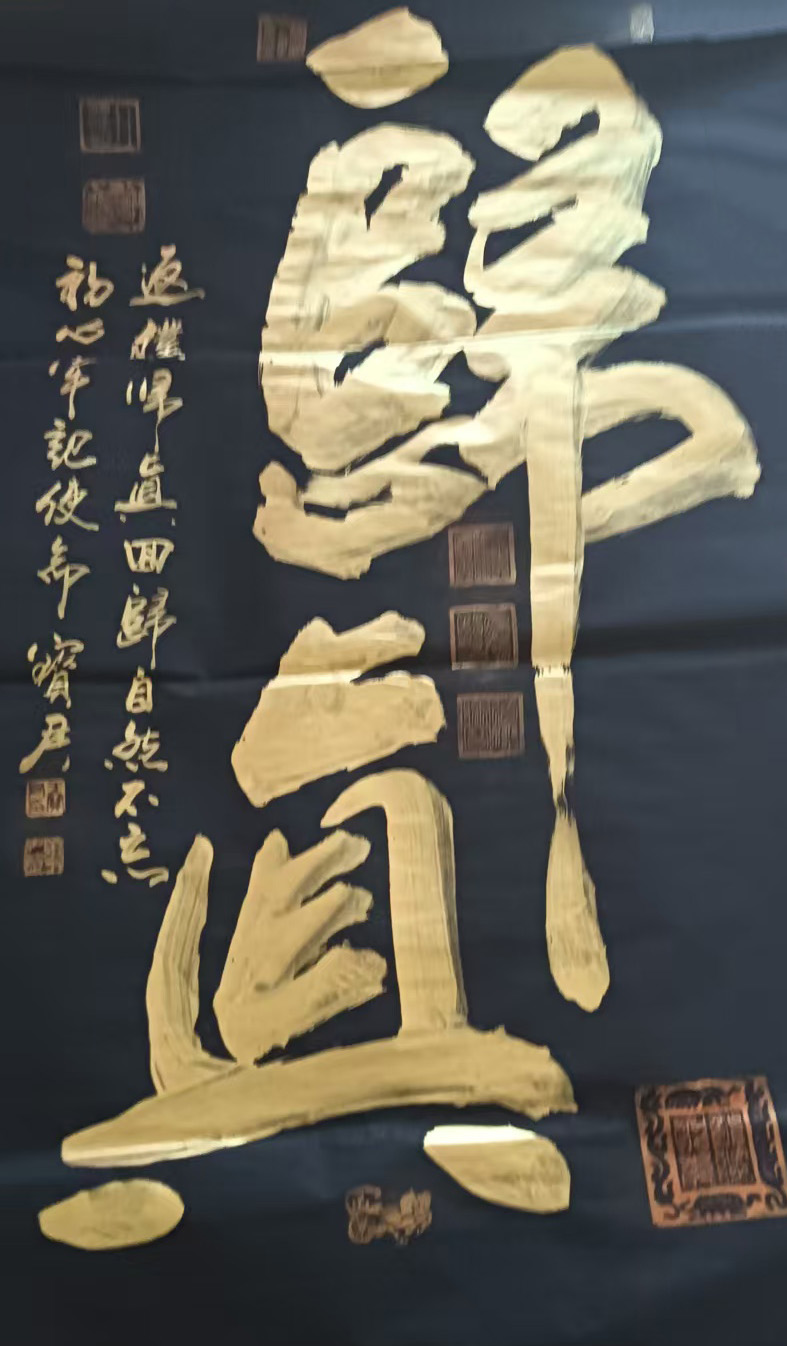 歸真
返樸归真回歸自然不忘
初心牢記使命 寶君